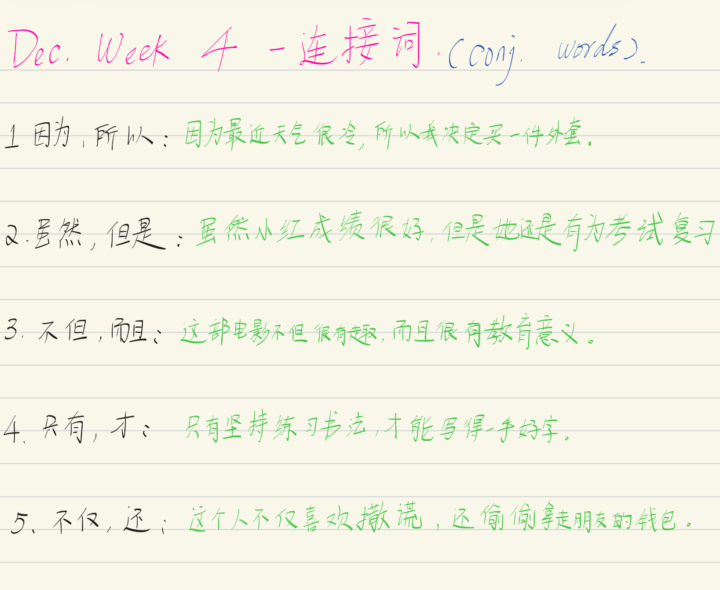 Dec. Week 4 - 连接词. (conj. words).
1 因为, 所以: 因为最近天气很冷, 所以我决定买一件外套。
2. 虽然, 但是: 虽然小红成绩很好, 但是她还是有为考试复习
3. 不但, 而且: 这部电影不但很有趣, 而且很有教育意义。
4. 只有, 才: 只有坚持练习书法, 才能写得一手好字。
5、不仅, 还: 这个人不仅喜欢撒谎, 还偷偷拿走朋友的钱包。